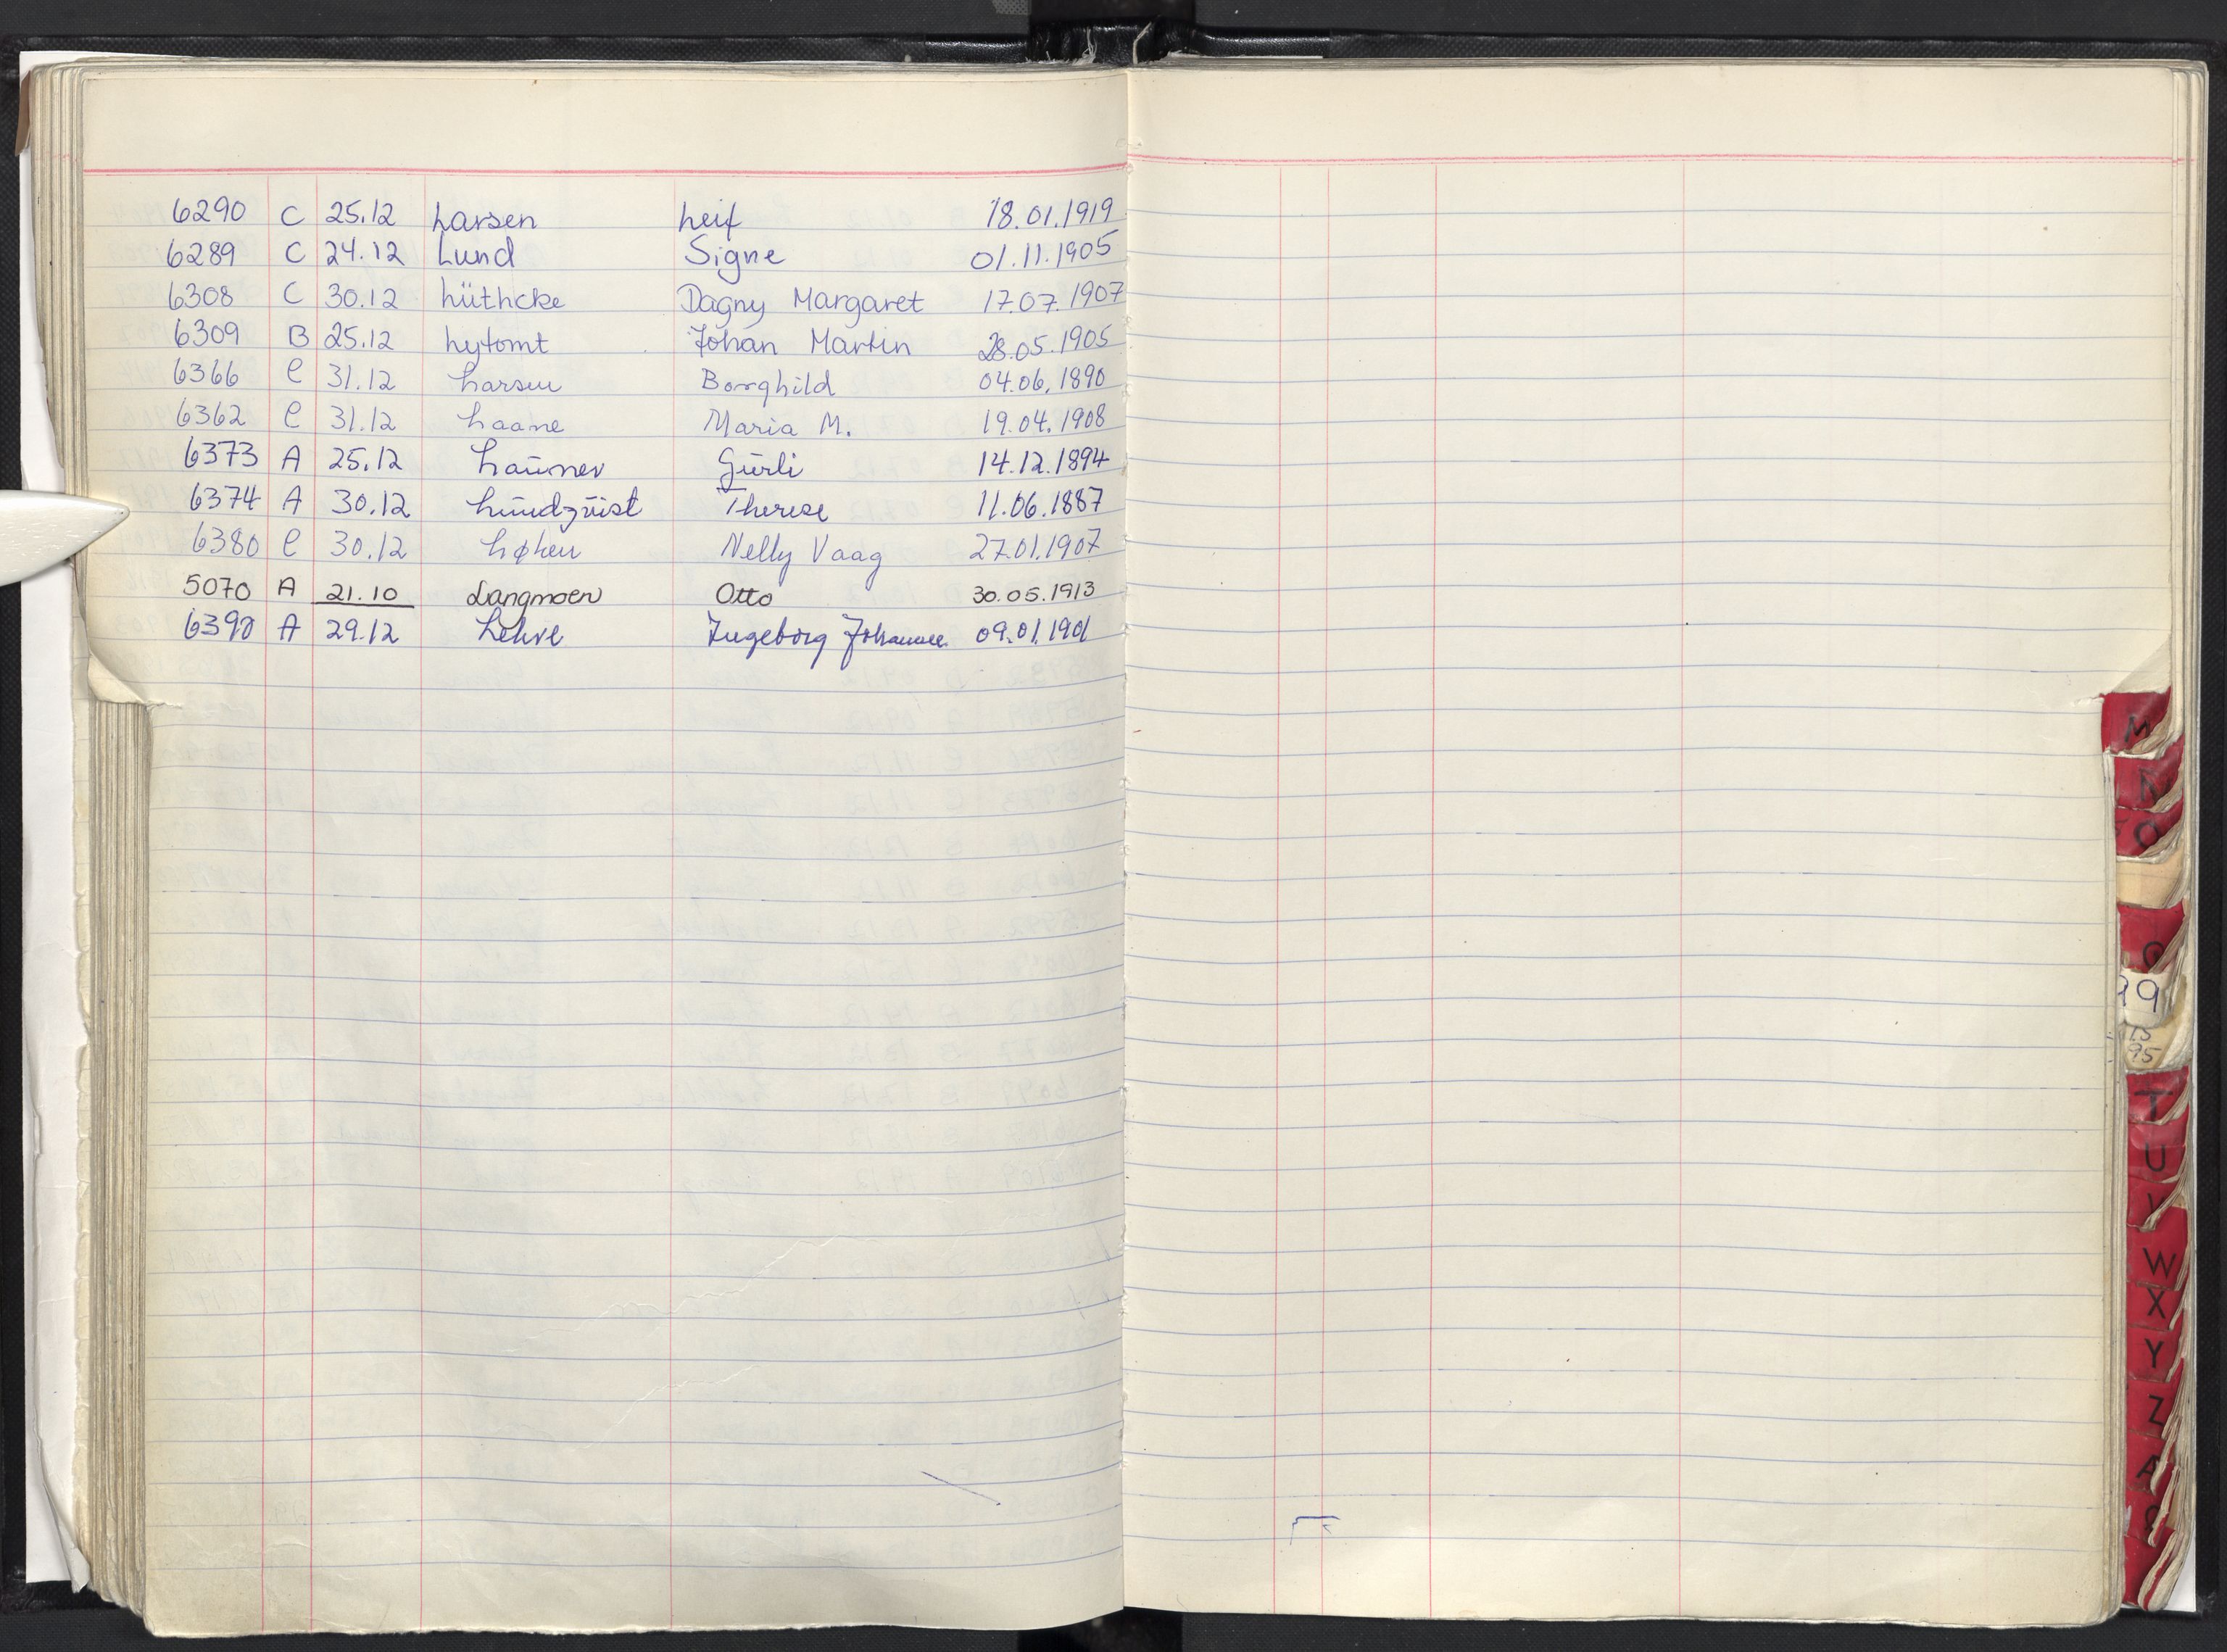 6290 C 25.12 Larsen Leif 18.01.1919
6289 C 24.12 Lund Signe 01.11.1905
6308 C 30.12 Lüthcke Dagny Margaret 17.07.1907
6309 B 25.12 Lytomt Johan Martin 28.05.1905
6366 C 31.12 Larsen Borghild 04.06.1890
6362 C 31.12 Laane Maria M. 19.04.1908
6373 A 25.12 Laumer Gurli 14.12.1894
6374 A 30.12 Lundquist Therese 11.06.1887
6380 C 30.12 Løken Nelly Vaag 27.01.1907
5070 A 21.10 Langmoen Otto 30.05.1913
6390 A 29.12 Lehre Ingeborg Johanne 09.01.1901
M
N
O
T
U
V
W
X
Y
Z